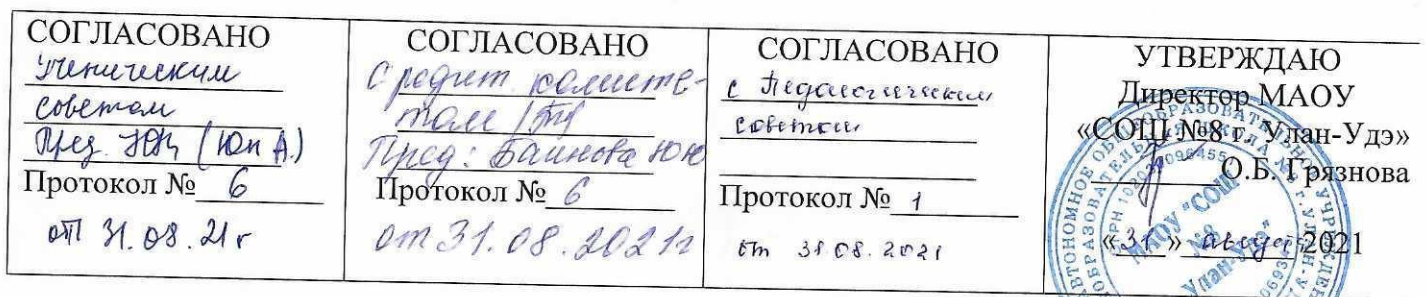 СОГЛАСОВАНО
Ученическим
советом
Пред. (Юн А.)
Протокол № 6
от 31.08.21г
СОГЛАСОВАНО
С родит. комите-
том
Пред: Баинова ЮЮ
Протокол № 6
от 31.08.2021г
СОГЛАСОВАНО
с Педагогическим
советом
Протокол № 1
от 31.08.2021
УТВЕРЖДАЮ
Директор МАОУ
«СОШ №8 г. Улан-Удэ»
О.Б. Грязнова
«31» август 2021
МАОУ "СОШ
№8
Улан-Удэ"